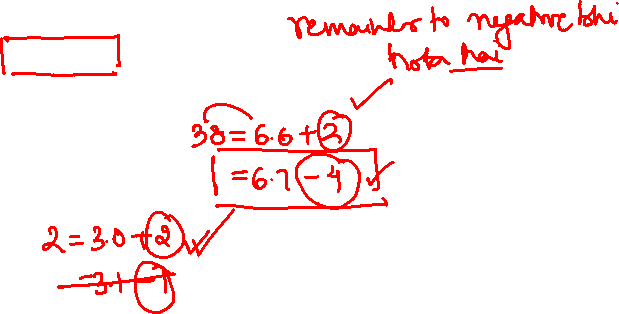 remainder to negative bhi
hota hai
38 = 6.6 + 2
= 6.7 - 4
2 = 3.0 + 2
3.1 - 1